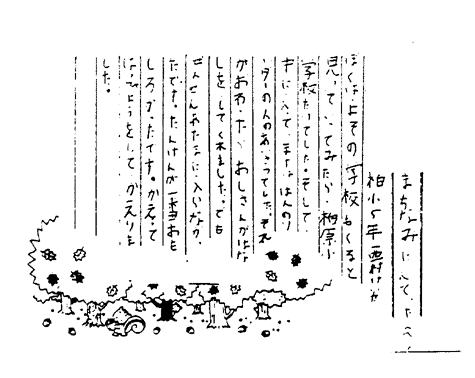 まちなみに入って
柏小5年西村
ぼくは、よその学校もくると
見っていてみたら、柏原小
学校だけでした。そして
中に入って、まずははんのリ
ーダーの人のあいさつでした。それ
がおわったら、おじさんがはな
しをしてくれました。でも
ぜんぜんあたまに入いらなか
たです。たんけんが一番おも
しろかったです。かえって
は、びょうをして、かえりま
した。